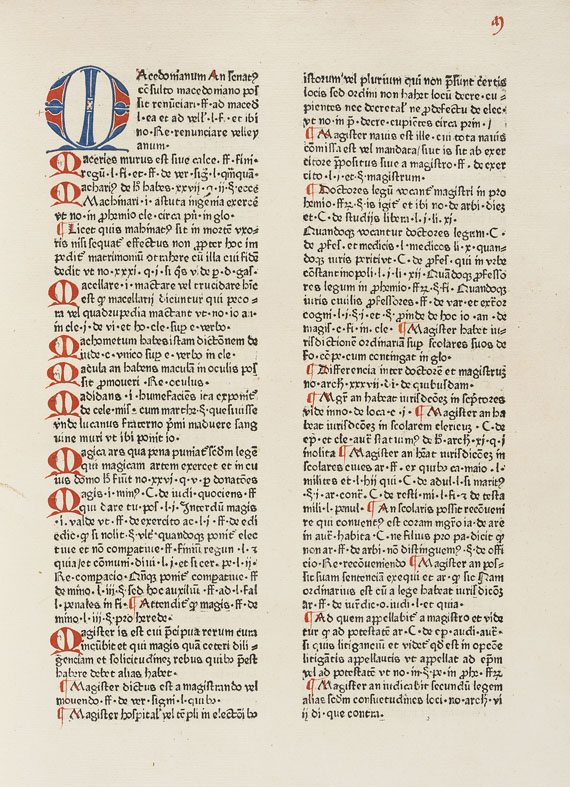 M
MAcedonianum An senatꝰ
cōsulto macedoniano pos
sit renūciari·ff·ad maced
l·ea et ad vell'·l·fi· et ibi
no·Re·renunciare velley
anum·
Maceries murus est siue calce·ff·fini·
regū·l·fi·et·ff·de ver·sig·l·
Machari de habes·xxvii·q·ii·§·ecce
Machinari·i·astuta ingenia exercere
vt no·in ꝓhemio cle·circa in glo·
¶ Licet quis mahinatꝰ sit in mortē vxo·
ris nisi sequatᷣ effectus non ꝓpter hoc im
pedit matrimoniū cū illa cui fidē
dedit vt no·xxxi·q·i·si qͥs v·de·d·gas·
Macellare·i·mactare vel trucidare hīc
est macellarij dicuntur qui peco·
ra vel quadrupedia mactant vt·no·io·an·
in cle·j·de vi·et ho·cle·sup e·verbo·
Machometum habes istam dictōnem de
iude·c·vnico sup e·verbo in cle
Macula an habens maculā in oculis pos
sit ꝓmoueri·Re·oculus·
Madidans·i·humefaciēs ita exponitᷣ
de cele·mis·cum marthe·§·quesiuisse
vnde lucanus fraterno madidere sang
uine muri vt ibi ponit io·
Magica ars qua pena puniatᷣ legē
qui magicam artem exercet et in cu
ius domo fiūt no·xxvi·q·v·p donatōes
Magis·i·minꝰ·C·de iudi·quociens·ff
qui dare tu·pos·l·j· Interdū magis
·i·valde vt·ff·de exercito ac·l·j·ff·de edi
edic·q si nolit·§·vlt·quandoqꝫ ponitᷣ elec
tiue et nō compatiue·ff·finiū regun·l·
quia/et cōmuni·diui·l·j·et si cer·pe·l·ij·
Re·compacio·Qn̄qꝫ ponitᷣ compatiue·ff
de mino·l·iij·§·sed hoc auxiliū·ff·ad·l·fal
l·penales in fi· ¶ Attenditᷣ magis·ff·de
mino·l·iij·§·pro herede·
Magister is est cui pͥcipua rerum cura
incūbit et qui magis quā ceteri dili·
genciam et solicitudinē rebus quibꝰ
habere debet alias habet·
¶ Magister dictus est a magistrando vel
mouendo·ff·de ver·signi·l·qui bo·
¶ Magister hospitalᷣ vel tēpli in electōi bꝰ
istorum vel plurium qui non p̄sunt certis
locis sed ordini non habet locū decre·cu·
pientes nec decretalᷣ ne ꝓ defectu de elec·
vt no·in decre·cupientes circa prin·
¶ Magister nauis est ille·cui tota nauis
cōmissa est vel mandata/siue is sit ab exer
citore p̄positus siue a magistro·ff·de exer
cito·l·j·et·§·magistrum·
¶ Doctores legū vocantᷣ magistri in pro
hemio·ff·§·is igitᷣ et ibi no·de arbi·dioꝫ
et·C·de studijs libera·l·j·li·xi·
Quandoqꝫ vocantur doctores legum·C·
de ꝓfes·et medicis·l·medicos li·x·quan·
doqꝫ iuris peritiꝰ·C·de ꝓfes·qui in vrbe
cōstantinopoli·l·j·li·xii·Quandoqꝫ ꝓfesso
res legum in ꝓhemio·ff·§·fi·Quandoqꝫ
iuris ciuilis ꝓfessores·ff·de var·et extᷣor
cogni·l·j·§·j·et·§·ꝓinde de hoc io·an·de
magiſ·c·fi·in cle· ¶ Magister habet iu·
risdictionē ordinariā sup scolares suos de
fo·cō·c·cum contingat in glo·
¶ Differencia inter doctorē et magistrū
no·arch·xxxvii·di·de quibusdam·
¶ Mgr̄ an habeat iurisdicōeꝫ in
vide inno·de loca·c·j· ¶ Magister an ha
beat iurisdicōeꝫ in scolarem clericū·C·de
ep̄·et cle·autᷣ statuimꝰ de·arch·xi·q·i
inolita ¶ Magister an hēat iurisdicōeꝫ in
scolares cuius ar·ff·ex quibꝰ ca·maio·l·
milites et·l·hij qui·C·de adul·l·si maritꝰ
§·j·ar·contᷣ·C·de resti·mi·l·fi·de testa
mili·l·penul· ¶ An scolaris possit recōueni
re qui conuentꝰ est coram mgr̄o ia·de are
in autᷣ·habita·C·ne filius pro pa·dicit
non ar·ff·de arbi·nō distinguemꝰ·§·de offi
cio·Re·recōueniendo ¶ Magister an pos·
sit suam sentenciā exequi et ar· sic nam
ordinarius est cū a lege habeat iurisdicōꝫ
ar·ff·de iurᷣ·dic·o·iudi·l·et quia·
¶ Ad quem appellabitᷣ a magistro et vide
tur ad potestatē ar·C·de ep·audi·autᷣ·
si quis litiganciū et videtᷣ qd̄ est in opcōe
litigātis appellantis vt appellat ad ep̄m
vel ad potestatē vt no·in·§·pe·in ꝓhe·ff·
¶ Magister an iudicabit secundū legem
alias sc̄dm consuetudinē loci·no·arch·vi
ii di·que contra·